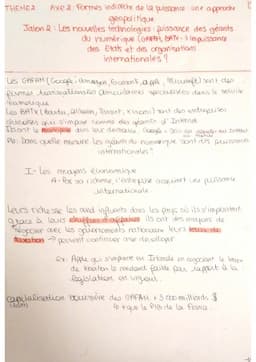 THEME 2 Axe 2: Formes indirectes de la puissance: une approche
géopolitique
Jalon 2: Les nouvelles technologies: puissance des géants
du numérique (GAFAM, BATX), impuissance
des États et des organisations
internationales?
Les GAFAM (Google, amazon, Facebook, apple, Microsoft) sont des
firmes transnationales américaines spécialisées dans le secteur
numérique
Les BATX (Baidu, Alibaba, Tencent, Xiaomi) sont des entreprises
chinoises qui s'impose comme des géants d'Internet
Ils ont le monopole dans leur domaine
Pb: Dans quelle mesure les géants du numérique sont des puissances
internationales
I - Les moyens économique
A - Par sa richesse, l'entreprise acquiert une puissance
internationale
Leurs richesse les rend influents dans les pays où ils s'implantent
grâce à leurs chiffres d'affaires ils ont des moyens de
négocier avec les gouvernements nationaux leurs taxation
→ peuvent continuer à se développer
Ex: Apple qui s'implante en Irlande en négociant le
de taxation le rendant faible par rapport à la
législation en vigueur.
capitalisation boursière des GAFAM: 3 000 milliards $
+ que le PIB de la France